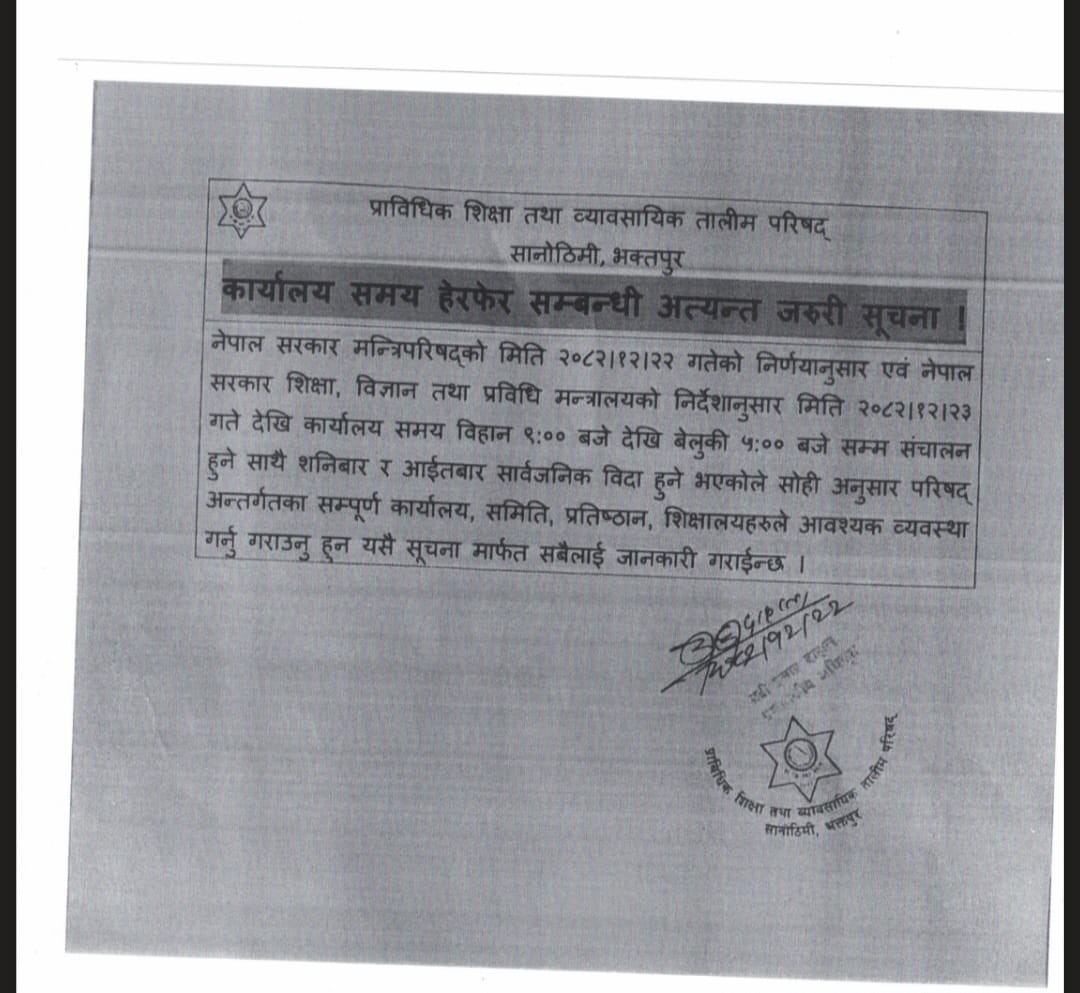 प्राविधिक शिक्षा तथा व्यावसायिक तालीम परिषद्
सानोठिमी, भक्तपुर
कार्यालय समय हेरफेर सम्बन्धी अत्यन्त जरुरी सूचना !
नेपाल सरकार मन्त्रिपरिषद्को मिति २०८२।१२।२२ गतेको निर्णयानुसार एवं नेपाल
सरकार शिक्षा, विज्ञान तथा प्रविधि मन्त्रालयको निर्देशानुसार मिति २०८२।१२।२३
गते देखि कार्यालय समय विहान ९:०० बजे देखि बेलुकी ५:०० बजे सम्म संचालन
हुने साथै शनिबार र आईतबार सार्वजनिक विदा हुने भएकोले सोही अनुसार परिषद्
अन्तर्गतका सम्पूर्ण कार्यालय, समिति, प्रतिष्ठान, शिक्षालयहरुले आवश्यक व्यवस्था
गर्नु गराउनु हुन यसै सूचना मार्फत सबैलाई जानकारी गराईन्छ ।
प्राबिधिक शिक्षा तथा ब्यावसायिक तालीम परिषद्
सानोठिमी, भक्तपुर